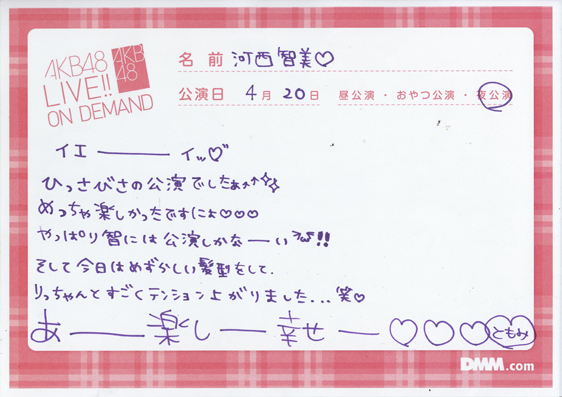 AKB48
LIVE!!
ON DEMAND
AKB
48
名前 河西智美♡
公演日 4月20日 昼公演・おやつ公演・夜公演
イエーーイッ♡゛
ひっさびさの公演でしたぁ↗↗☆☆
めっちゃ楽しかったですにょ♡♡♡
やっぱり智には公演しかなーい!!
そして今日はめずらしい髪型をして、
りっちゃんとすごくテンション上がりました...笑♡
あー楽しー幸せー♡♡♡ともみ
DMM.com